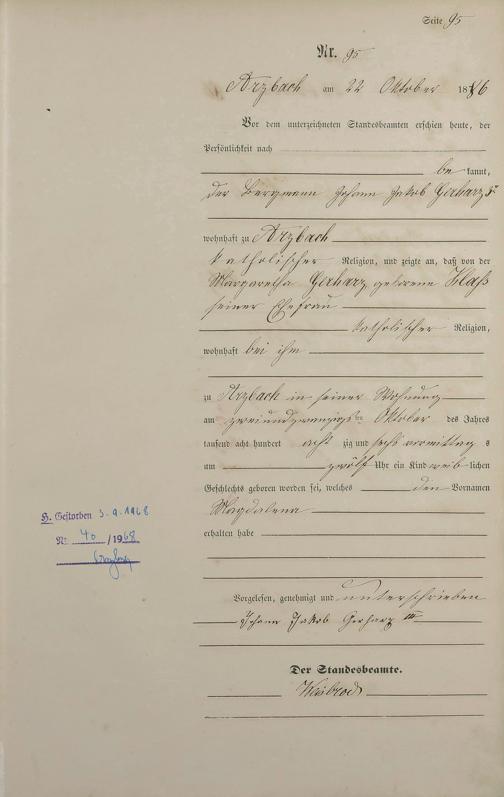 Seite 95
Nr. 95
Arzbach am 22 Oktober 1886
Vor dem unterzeichneten Standesbeamten erschien heute, der
Persönlichkeit nach
be kannt,
der Bergmann Johann Jakob Gerharz
wohnhaft zu Arzbach
katholischer Religion, und zeigte an, daß von der
Margaretha Gerharz geborene
seiner Ehefrau
katholischer Religion,
wohnhaft bei ihm
zu Arzbach in seiner Wohnung
am zweiundzwanzigsten Oktober des Jahres
tausend acht hundert acht zig und sechs vormittag s
um zwölf Uhr ein Kind weib lichen
Geschlechts geboren worden sei, welches den Vornamen
Magdalena
erhalten habe
H. Gestorben 3.9.1968
Nr. 40 /1968
Arzbach
Vorgelesen, genehmigt und unterschrieben
Johann Jakob Gerharz III
Der Standesbeamte.
Weisbrod